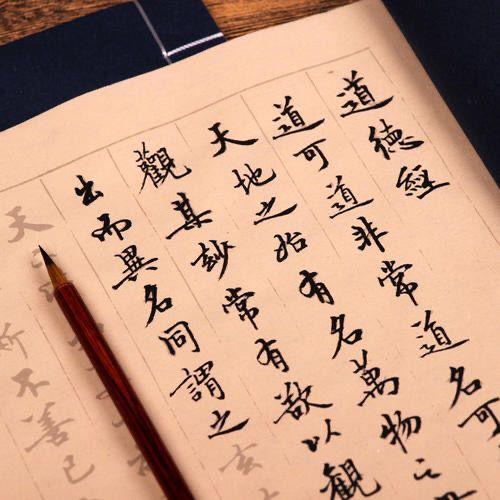 道德經
道可道非常道名可
天地之始有名萬物之
觀其玅常有欲以觀
出而異名同謂之玄
天
斯不善已